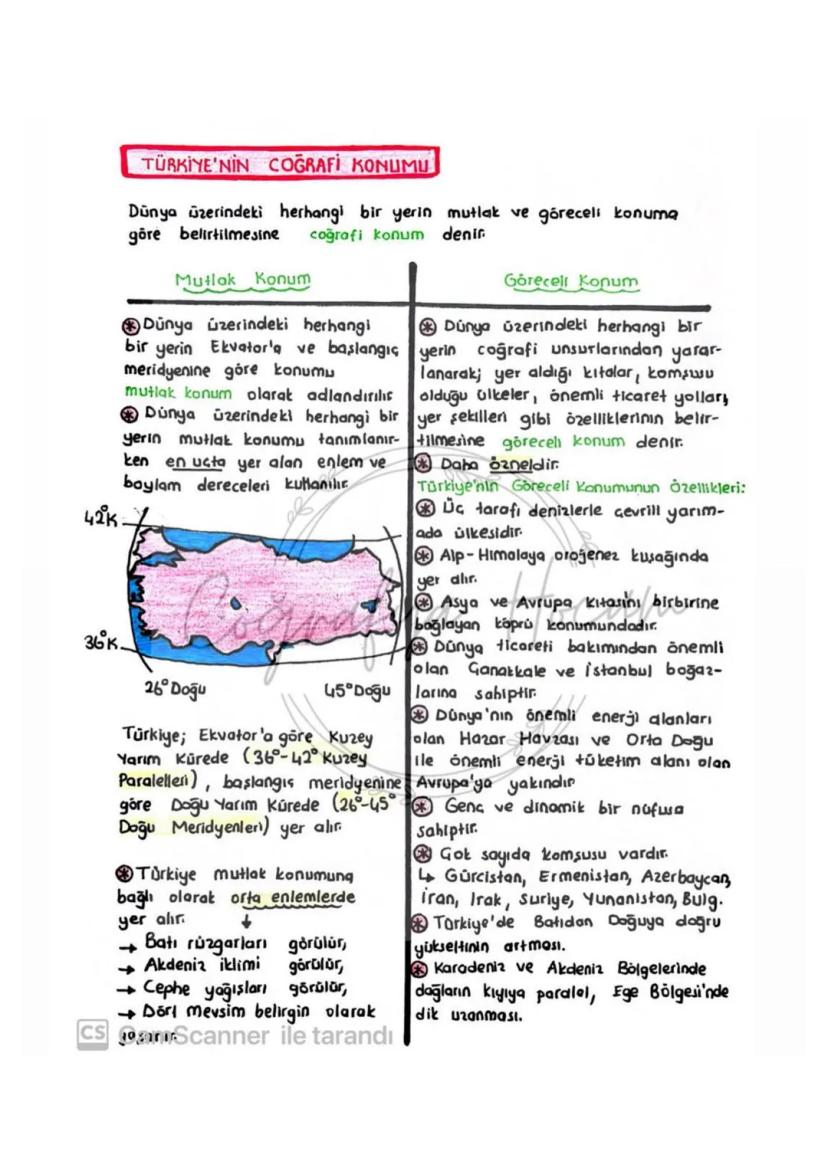 TÜRKİYE'NİN COĞRAFİ KONUMU
Dünya üzerindeki herhangi bir yerin mutlak ve göreceli konuma
göre belirtilmesine coğrafi konum denir.
Mutlak Konum
⊛ Dünya üzerindeki herhangi
bir yerin Ekvator'a ve başlangıç
meridyenine göre konumu
mutlak konum olarak adlandırılır
⊛ Dünya üzerindeki herhangi bir
yerin mutlak konumu tanımlanır-
ken en uçta yer alan enlem ve
boylam dereceleri kullanılır.
42°K
36°K
26° Doğu 45° Doğu
Türkiye; Ekvator'a göre Kuzey
Yarım Kürede (36°-42° Kuzey
Paralelleri), başlangıç meridyenine
göre Doğu Yarım Kürede (26°-45°
Doğu Meridyenleri) yer alır.
⊛ Türkiye mutlak konumuna
bağlı olarak orta enlemlerde
yer alır. ↓
→ Batı rüzgarları görülür,
→ Akdeniz iklimi görülür,
→ Cephe yağışları görülür,
→ Dört mevsim belirgin olarak
yaşanır.
Göreceli Konum
⊛ Dünya üzerindeki herhangi bir
yerin coğrafi unsurlarından yarar-
lanarak; yer aldığı kıtalar, komşusu
olduğu ülkeler, önemli ticaret yolları,
yer şekilleri gibi özelliklerinin belir-
tilmesine göreceli konum denir.
⊛ Daha özneldir.
Türkiye'nin Göreceli Konumunun Özellikleri:
⊛ Üç tarafı denizlerle çevrili yarım-
ada ülkesidir.
⊛ Alp-Himalaya orojenez kuşağında
yer alır.
⊛ Asya ve Avrupa kıtasını birbirine
bağlayan köprü konumundadır.
⊛ Dünya ticareti bakımından önemli
olan Çanakkale ve İstanbul boğaz-
larına sahiptir.
⊛ Dünya'nın önemli enerji alanları
olan Hazar Havzası ve Orta Doğu
ile önemli enerji tüketim alanı olan
Avrupa'ya yakındır
⊛ Genç ve dinamik bir nüfusa
sahiptir.
⊛ Çok sayıda komşusu vardır.
↳ Gürcistan, Ermenistan, Azerbaycan,
İran, Irak, Suriye, Yunanistan, Bulg.
⊛ Türkiye'de Batıdan Doğuya doğru
yükseltinin artması.
⊛ Karadeniz ve Akdeniz Bölgelerinde
dağların kıyıya paralel, Ege Bölgesi'nde
dik uzanması.
Coğrafya Hocam
CS CamScanner ile tarandı